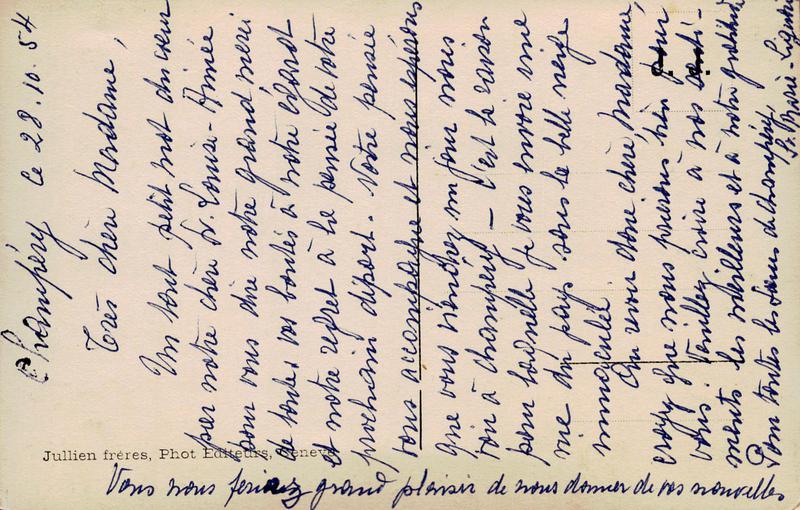 Champéry le 28.10.54
Très chère Madame,
Un tout petit mot du cœur
par notre chère Sr. Louise-Aimée
pour vous dire notre grand merci
de toutes vos bontés à notre égard
et notre regret à la pensée de votre
prochain départ. Notre pensée
vous accompagne et nous espérons
que vous viendrez un jour nous
voir à Champéry - C'est la raison
pour laquelle je vous envoie une
vue du pays sous la belle neige
immaculée.
Au revoir donc chère Madame,
croyez que nous prierons bien pour
vous. Veuillez croire à nos senti-
ments les meilleurs et à notre gratitude
Pour toutes les Sœurs de Champéry,
Sr. Marie-
Vous nous feriez grand plaisir de nous donner de vos nouvelles
Jullien frères, Phot Editeurs, Genève